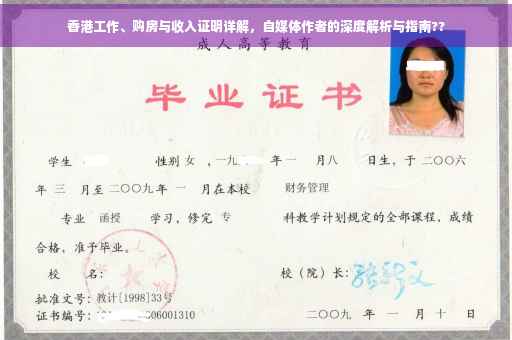 香港工作、购房与收入证明详解，自媒体作者的深度解析与指南??
成人高等教育
毕业证书
学生 性别 女 ，一九 年一 月八 日生，于二〇〇六
年 三 月至二〇〇九年 一 月在本校 财务管理
专业 函授 学习，修完 专 科教学计划规定的全部课程，成绩
合格，准予毕业。
校 名： 校（院）长：
批准文号：教计[1998]33号
证书编号： 06001310 二〇〇九 年 一 月 十 日